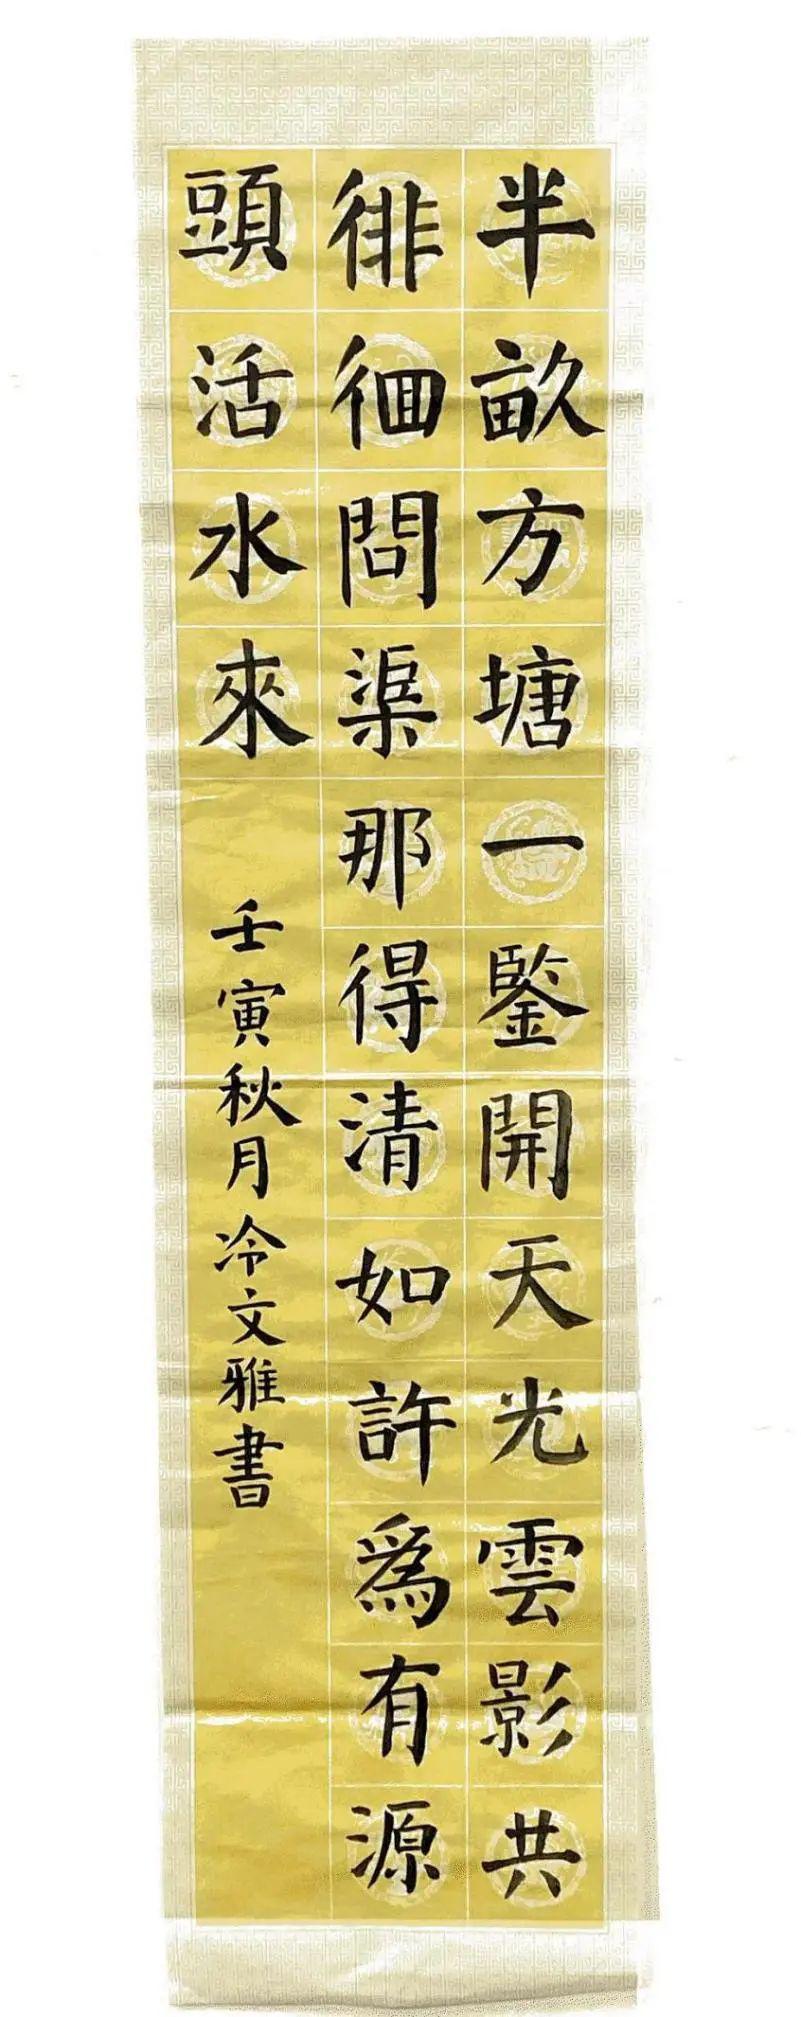 半畝方塘一鑒開天光雲影共
徘徊問渠那得清如許爲有源
頭活水來
壬寅秋月冷文雅書